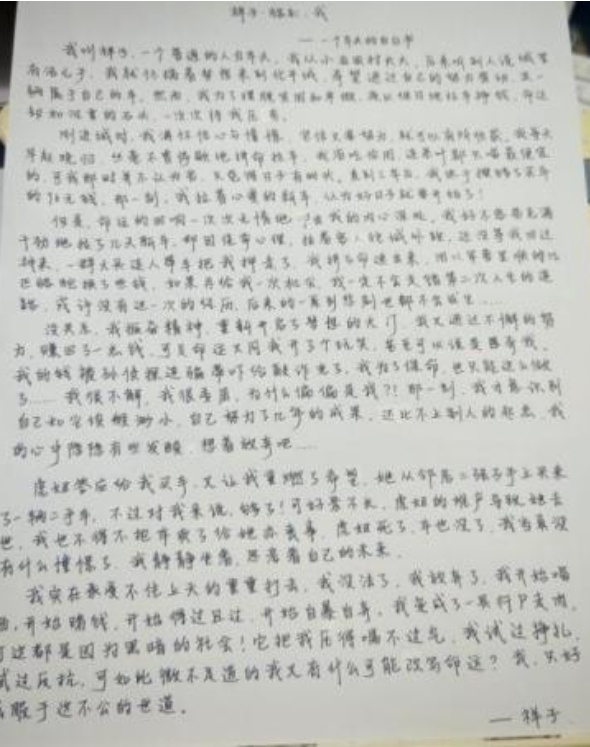 祥子·骆驼·我
——一个车夫的自白书
我叫祥子,一个普通的人力车夫。我从小在农村长大,后来听别人说城里
有活儿干,我就怀揣着梦想来到北平城,希望通过自己的努力劳动,买一
辆属于自己的车。然而,我为了摆脱贫困和卑微,而从烈日地拉车挣钱,命运
却如沉重的石头,一次次将我压垮。
刚进城时,我满怀信心与憧憬,坚信只要努力,就可以有所收获。我每天
早起晚归,丝毫不肯停歇地拼命拉车,我省吃俭用,连茶叶都只喝最便宜
的,可我那时并不认为苦,只觉得日子有盼头。直到三年后,我终于攒够了买车
的九十六块钱,那一刻,我拉着心爱的新车,认为好日子就要开始了!
但是,命运的回响一次次无情地 击我的内心深处,我好不容易充满
干劲地拉了几天新车,却因侥幸心理,拉着客人往城外跑,还没等我回过
神来,一群大兵连人带车把我押走了。我拼了命逃出来,用以 骆
驼换了些钱,如果再给我一次机会,我一定不会走错第二次人生的道
路,或许没有这一次的经历,后来的一系列悲剧也都不会发生……
没关系,我振奋精神,重新开启了梦想的大门,我又通过不懈的努
力,赚回了一点钱,可是命运又同我开了个玩笑,甚至可以说是愚弄我,
我的钱被孙侦探连骗带吓给敲诈走了,我为了保命,也只能这么做
了……我很不解,我很委屈,为什么偏偏是我?!那一刻,我才意识到
自己如尘埃般渺小,自己努力了几年的成果,还比不上别人的 ,我
的心中隐隐有些发酸,想着放弃吧……
虎妞答应给我买车,又让我重燃了希望,她从邻居二强子手上买来
了一辆二手车,不过对我来说,够了!可好景不长,虎妞的难产导致她去
世,我也不得不把车卖了给她办丧事,虎妞死了,车也没了,我当真没
有什么憧憬了。我静静坐着,思考着自己的未来。
我实在承受不住上天的重重打击,我没法了,我放弃了,我开始喝
酒,开始赌钱,开始得过且过,开始自暴自弃,我变成了一具行尸走肉,
可这都是因为黑暗的社会!它把我压得喘不过气,我试过挣扎,
试过反抗,可如此微不足道的我又有什么可能改写命运?我,只好
屈服于这不公的世道。
——祥子